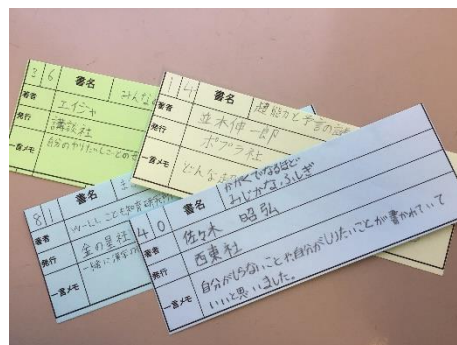 36 書名 みんなの
著者 エイジャ
発行 講談社
一言メモ
14 書名 超能力と予言の
著者 並木伸一郎
発行 ポプラ社
一言メモ どんな
81 書名
著者
発行 金の星社
一言メモ 一緒に
40 書名 かがくでなるほど
みじかな、ふしぎ
著者 佐々木 昭弘
発行 西東社
一言メモ 自分がしらないことや自分がしりたいことが書かれていて
いいと思いました。